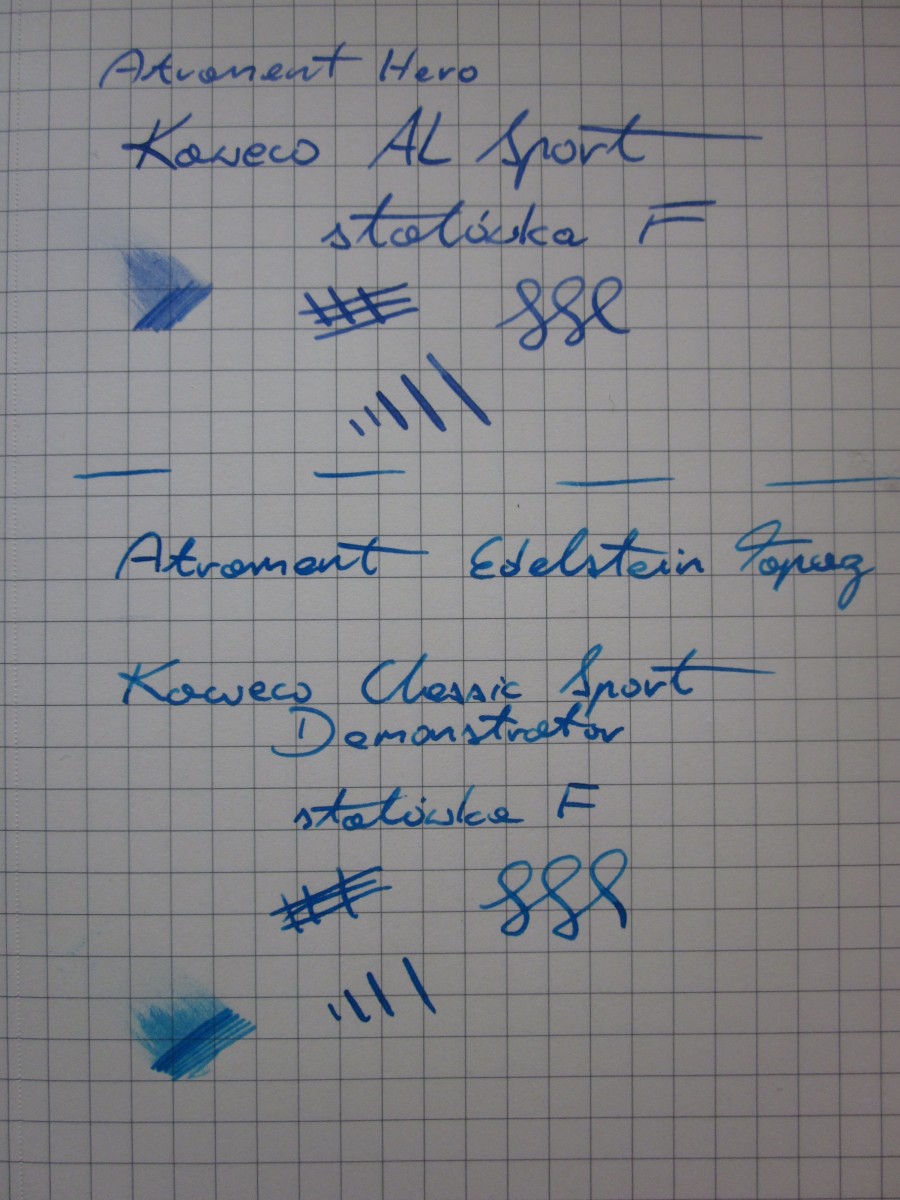 Atrament Hero
Kaweco AL Sport
stalówka F
Atrament Edelstein Topaz
Kaweco Classic Sport
Demonstrator
stalówka F